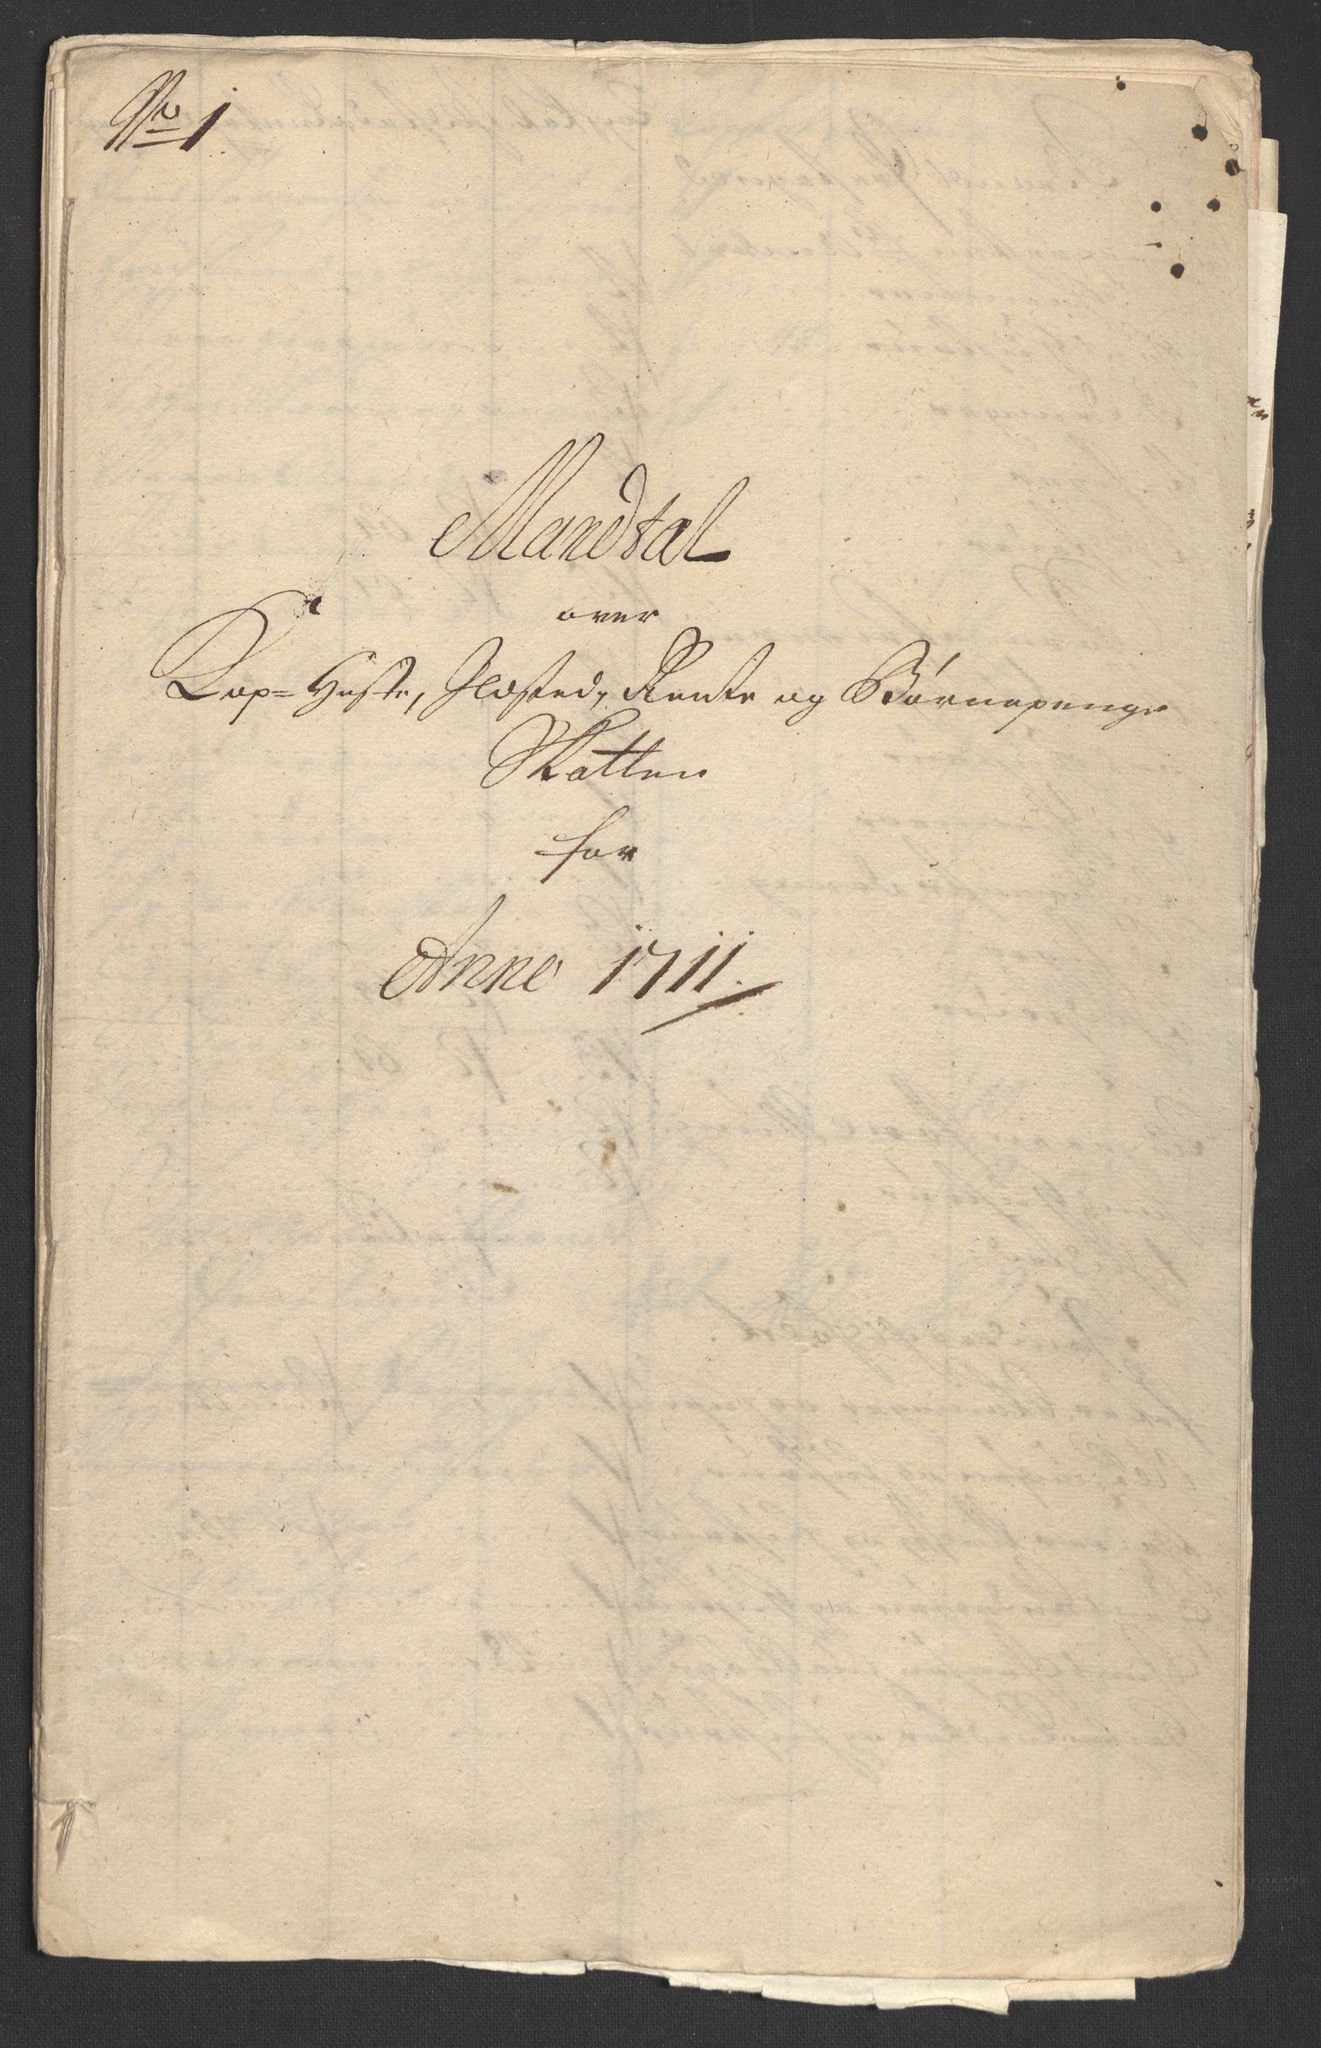 No 1
Mandtal
over
Kop- Heste, Ildsted, Rente og Børnepenge
Skatten
for
Anno 1711.